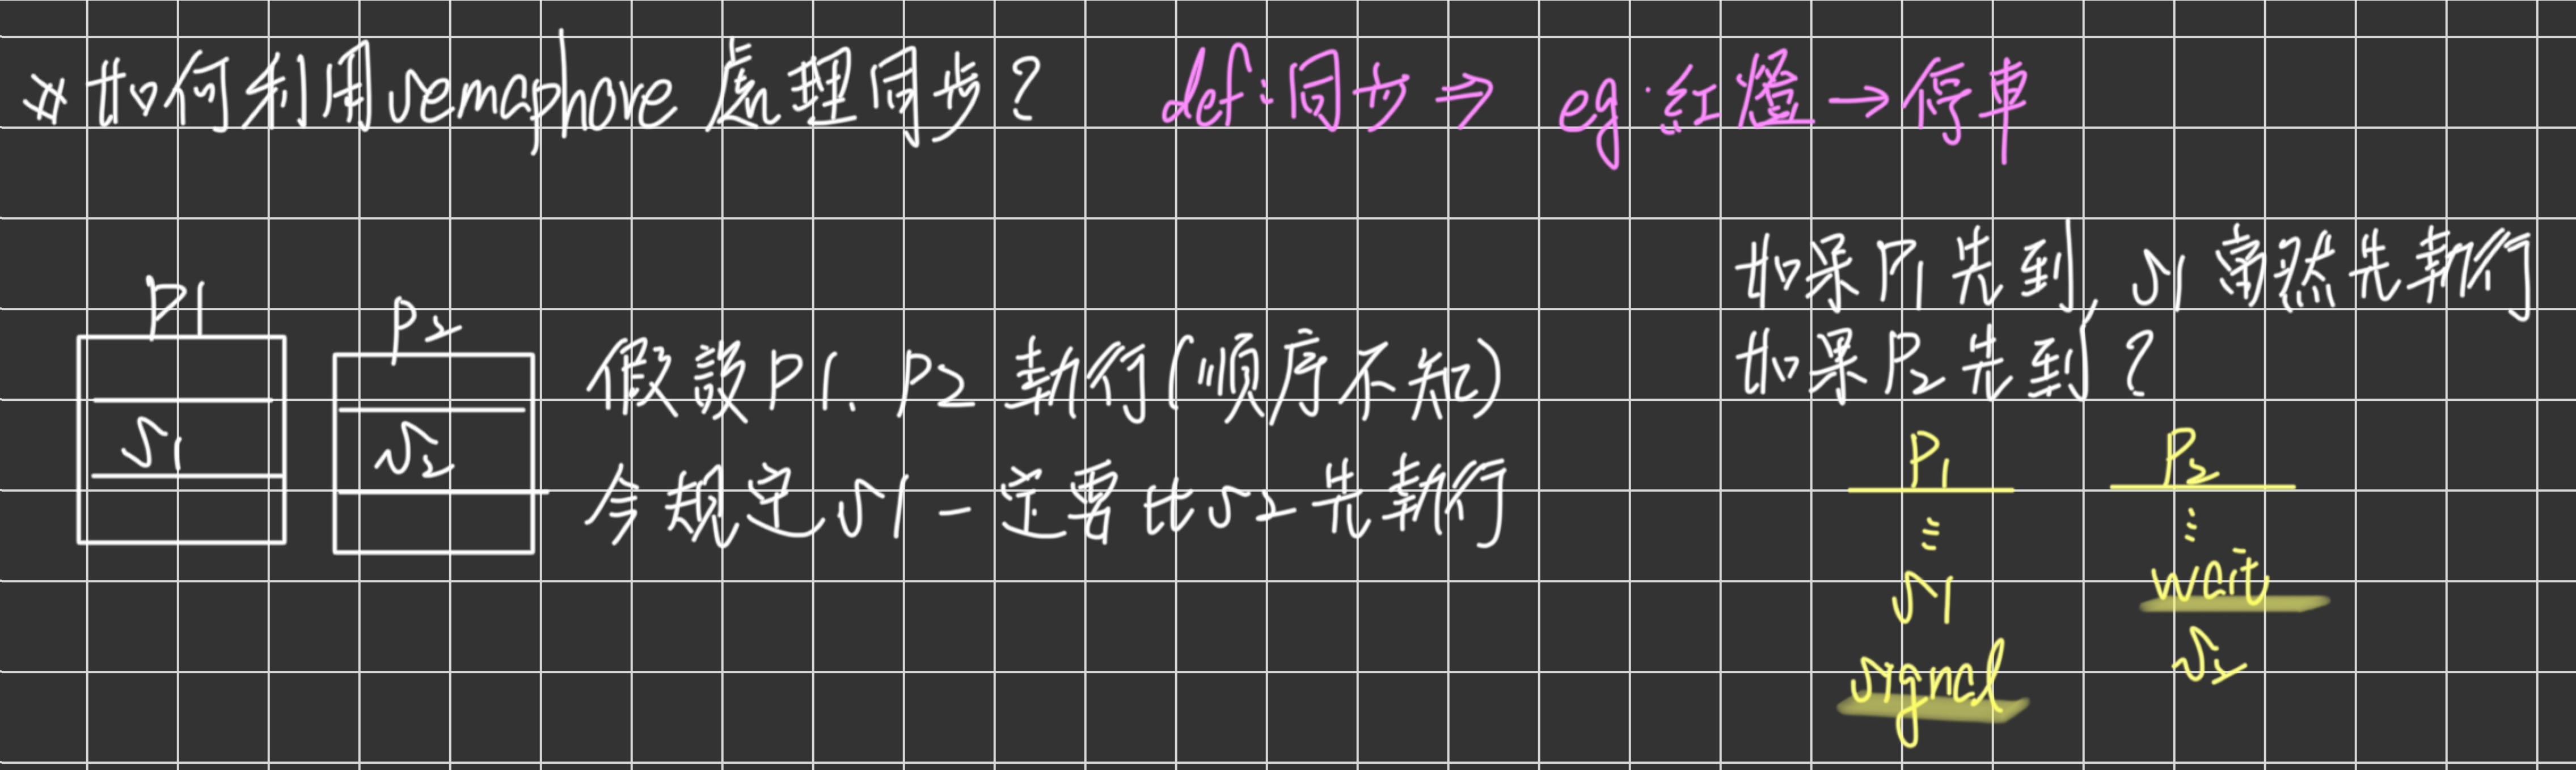 * 如何利用semaphore處理同步?
def:同步⇒ eg.紅燈→停車
P1
S1
P2
S2
假設P1、P2執行(順序不知)
今規定S1一定要比S2先執行
如果P1先到, S1當然先執行
如果P2先到?
P1
⋮
S1
signal
P2
⋮
wait
S2